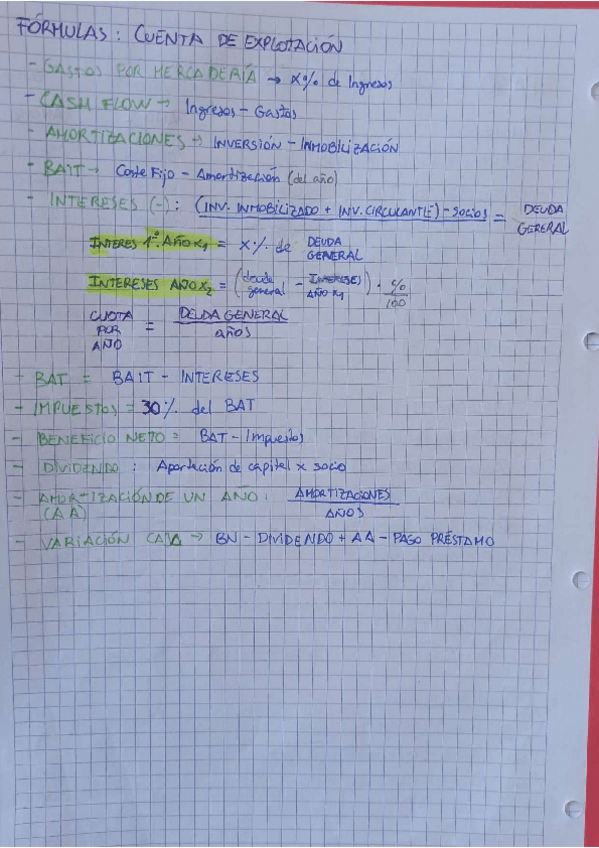 FÓRMULAS: CUENTA DE EXPLOTACIÓN
- GASTOS POR MERCADERÍA → X% de Ingresos
- CASH FLOW → Ingresos - Gastos
- AMORTIZACIONES → INVERSIÓN - INMOBILIZACIÓN
- BAIT → Coste Fijo - Amortización (del año)
- INTERESES (-): (INV. INMOBILIZADO + INV. CIRCULANTE) - SOCIOS = DEUDA GENERAL
INTERES 1º. AÑO X1 = X% de DEUDA GENERAL
INTERESES AÑO X2 = (deuda general - INTERESES AÑO X1) · %/100
CUOTA POR AÑO = DEUDA GENERAL / AÑOS
- BAT = BAIT - INTERESES
- IMPUESTOS = 30% del BAT
- BENEFICIO NETO = BAT - Impuestos
- DIVIDENDO: Aportación de capital x socio
- AMORTIZACIÓN DE UN AÑO: AMORTIZACIONES / AÑOS
(AA)
- VARIACIÓN CAJA → BN - DIVIDENDO + AA - PAGO PRÉSTAMO